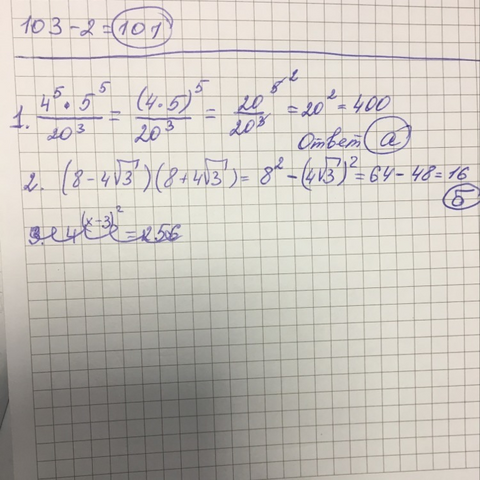 103-2=101
1. 4⁵·5⁵/20³ = (4·5)⁵/20³ = 20⁵ ²/20³ = 20² = 400
Ответ а
2. (8-4√3)(8+4√3) = 8² - (4√3)² = 64-48 = 16
б
3. 4^(x-3)² = 256